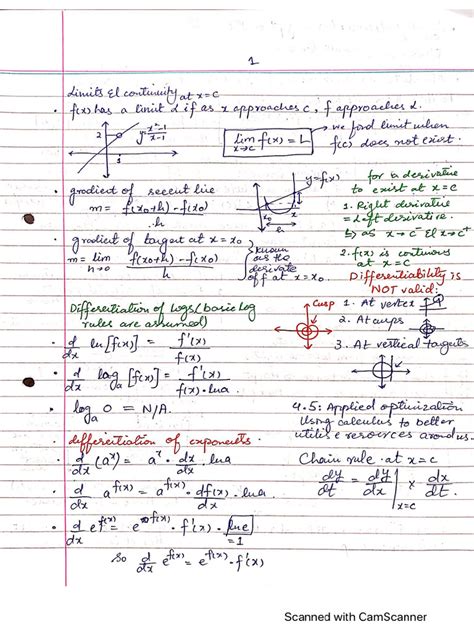 1
Limits & continuity at x=c
• f(x) has a limit L if as x approaches c, f approaches L.
2
1
y = x²-1 / x-1
Lim x→c f(x) = L
→ we find limit when f(c) does not exist.
• gradient of secent line
m = f(x₀+h) - f(x₀) / h
y=f(x)
x₀
h
• gradient of tangent at x = x₀
m = lim h→0 f(x₀+h) - f(x₀) / h
known as the derivate of f at x=x₀.
for a derivative to exist at x=c
1. Right derivative = Left derivative.
b) as x→c⁻ & x→c⁺
2. f(x) is continous at x=c
Differentiability is NOT valid:
Cusp
1. At vertex
2. At cusps
3. At vertical tangents
Differentiation of logs (basic log rules are assumed)
• d/dx ln[f(x)] = f'(x) / f(x)
• d/dx log_a [f(x)] = f'(x) / f(x)·lna
• log_a 0 = N/A.
4.5: Applied optimization
Using calculus to better utilise resources around us.
• differentiation of exponents.
• d/dx (aˣ) = aˣ · dx/dx · lna
• d/dx a^f(x) = a^f(x) · df(x)/dx · lna
• d/dx e^f(x) = e^f(x) · f'(x) · lne
=1
So d/dx e^f(x) = e^f(x) · f'(x)
Chain rule at x=c
dy/dt = dy/dx | x=c × dx/dt.
Scanned with CamScanner